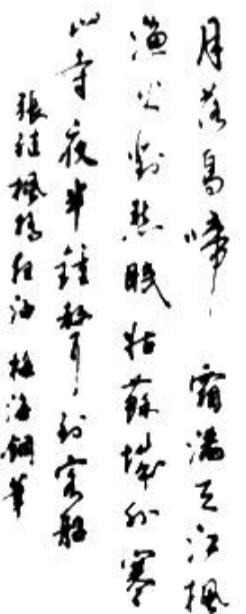 月落烏啼霜滿天江楓
漁火對愁眠姑蘇城外寒
山寺夜半鐘聲到客船
張繼楓橋夜泊 梅海鋼筆